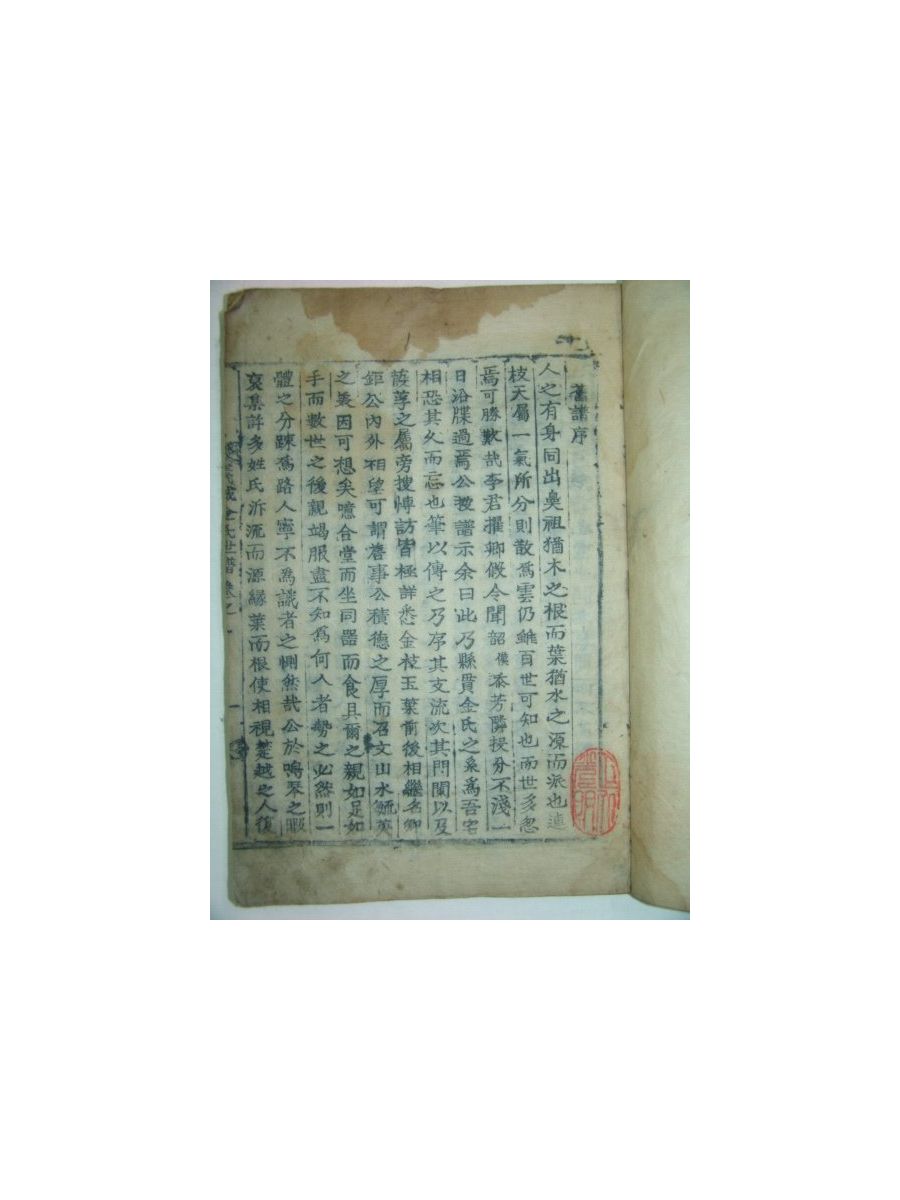 舊譜序
人之有身同出鼻祖猶木之根而葉猶水之源而派也連
枝天屬一氣所分則散爲雲仍雖百世可知也而世多忽
焉可勝歎哉李君撰卿假令聞韶僕忝芳隣投分不淺一
日沿牒過焉公披譜示余曰此乃縣貫金氏之系爲吾宅
相恐其久而忘也筆以傳之乃序其支流次其門閥以及
葭莩之屬旁搜博訪皆極詳悉金枝玉葉前後相繼名卿
鉅公內外相望可謂僉事公積德之厚而召文山水毓英
之異因可想矣噫合堂而坐同器而食具爾之親如足如
手而數世之後親竭服盡不知爲何人者勢之必然則一
體之分踈爲路人寧不爲識者之惻然哉公於鳴琴之暇
裒集許多姓氏泝流而源緣葉而根使相視楚越之人復
城金氏世譜卷之一